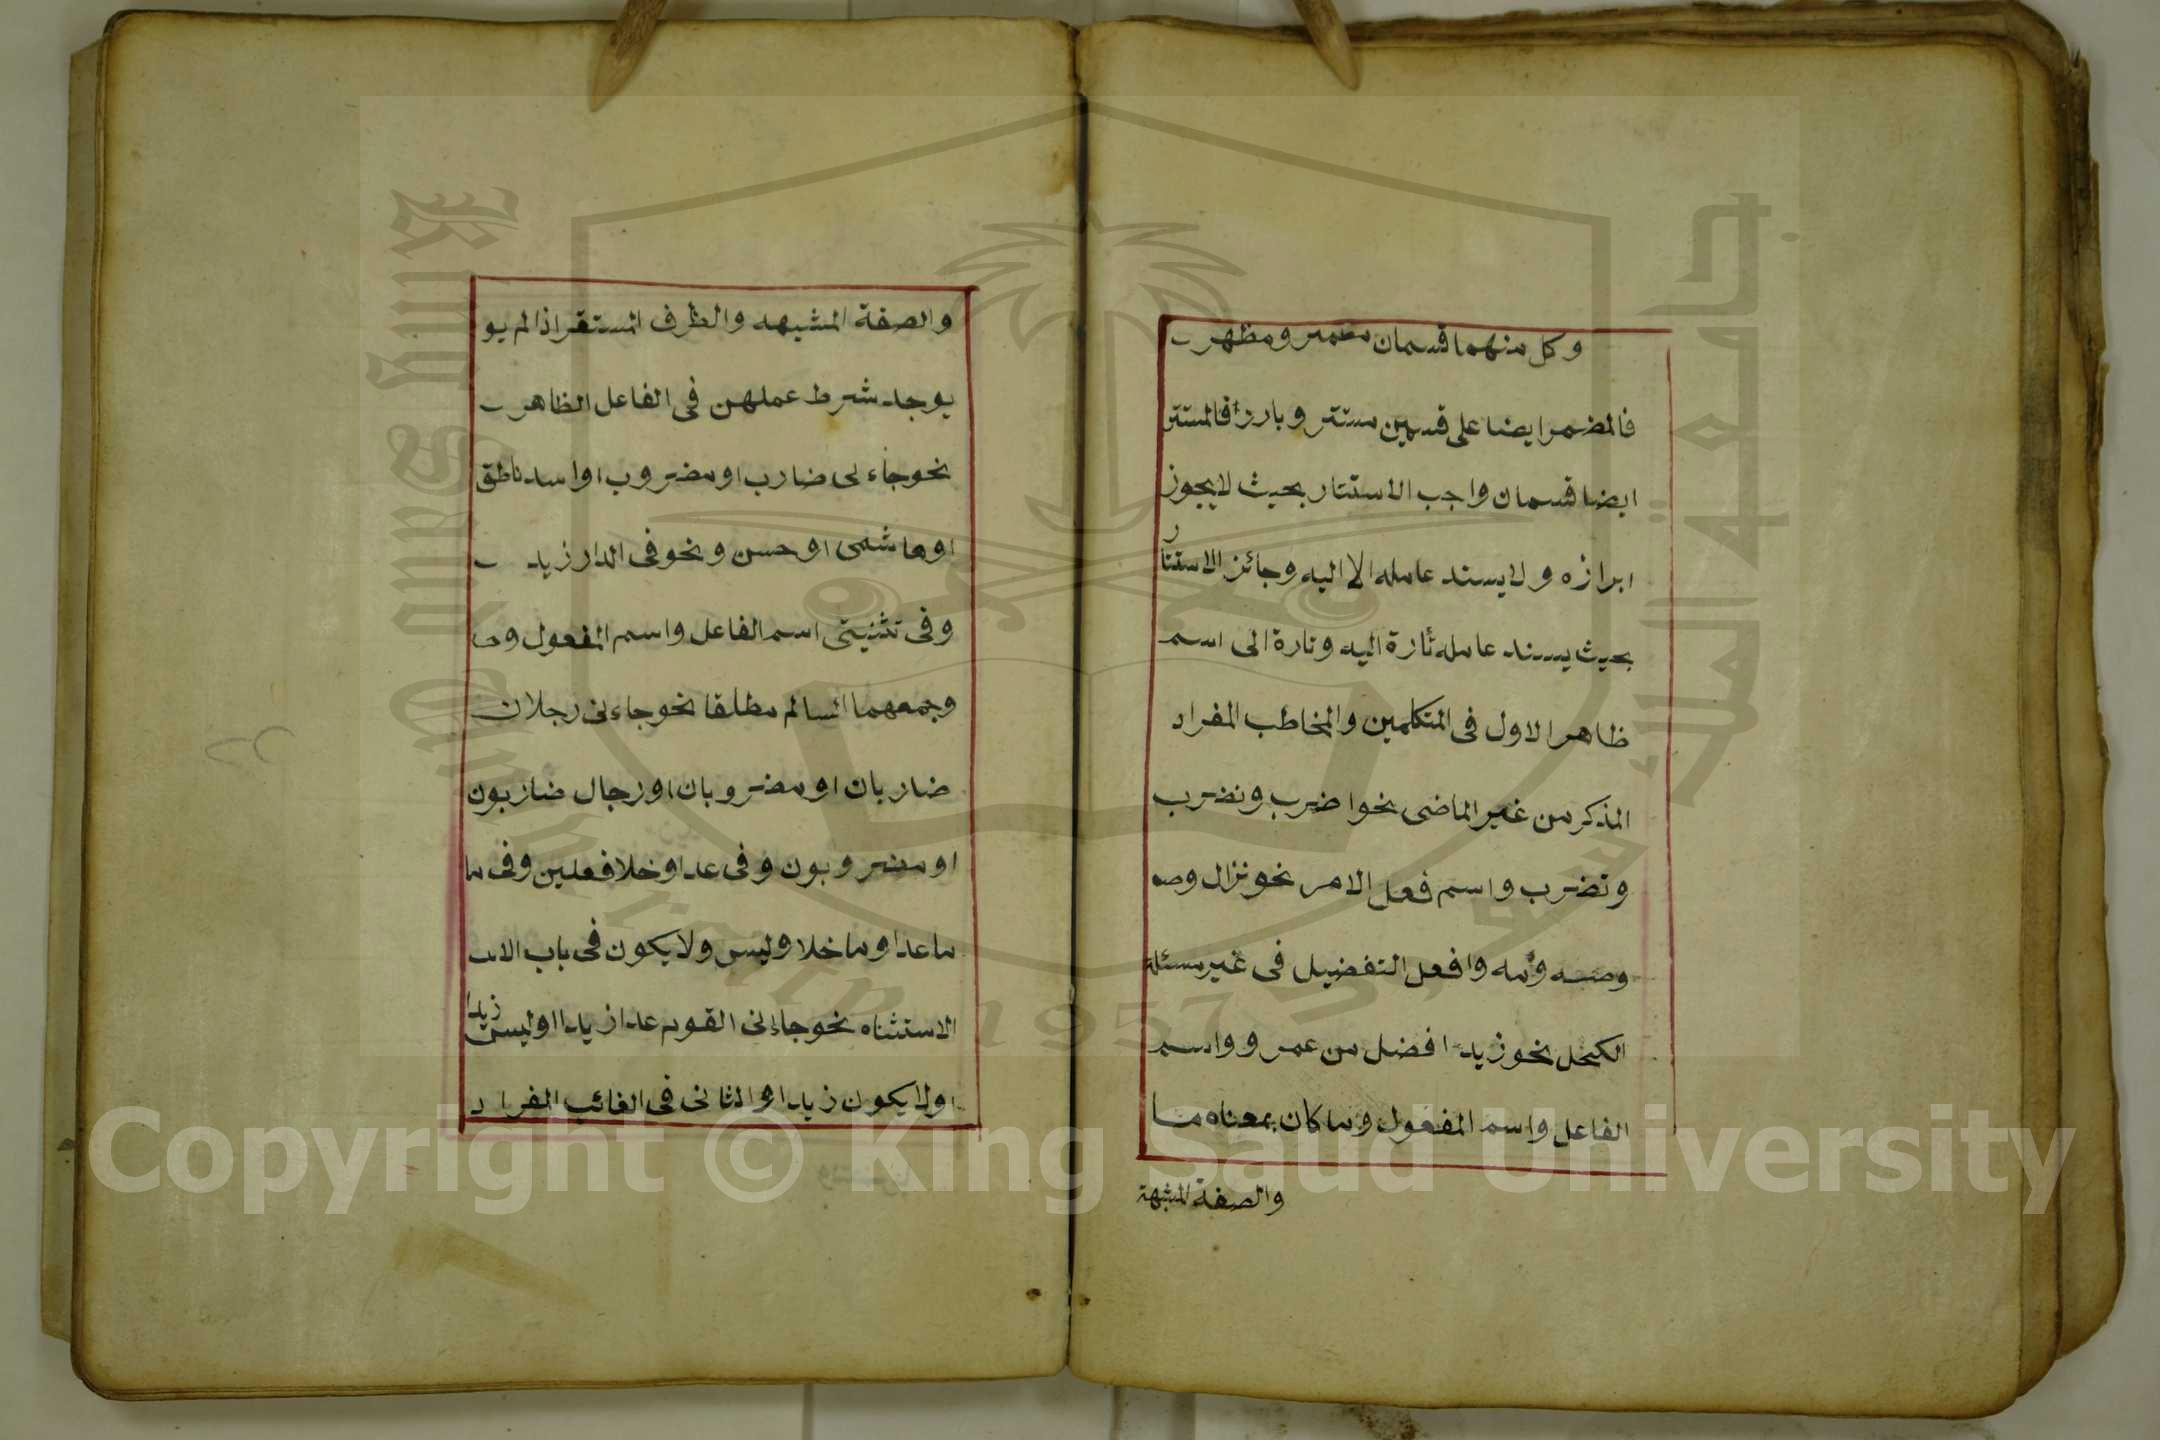 وكل منهما قسمان مضمر ومظهر
فالمضمر ايضا على قسمين مستتر وبارز فالمستتر
ايضا قسمان واجب الاستتار بحيث لايجوز
ابرازه ولايسند عامله الا اليه وجائز الاستتار
بحيث يسند عامله تارة اليه وتارة الى اسم
ظاهر الاول فى المتكلمين والمخاطب المفراد
المذكر من غير الماضى نحو اضرب ونضرب
وتضرب واسم فعل الامر نحو نزال وصه
وصه ومه وافعل التفضيل فى غير مسئلة
الكحل نحو زيد افضل من عمرو واسم
الفاعل واسم المفعول وما كان بمعناه ما
والصفة المشبهة
والصفة المشبهه والظرف المستقر اذا لم يو
يوجد شرط عملهن فى الفاعل الظاهر
نحو جاء لى ضارب او مضروب او اسد ناطق
او هاشمى او حسن ونحو فى الدار زيد
وفى تثنيتى اسم الفاعل واسم المفعول وجـ
وجمعهما السالم مطلقا نحو جاءنى رجلان
ضاربان او مضروبان او رجال ضاربون
او مضروبون وفى عدا وخلا فعلين وفى ما
ما عدا وما خلا وليس ولايكون فى باب الاسـ
الاستثناه نحو جاءنى القوم عدا زيدا او ليس زيدا
او لايكون زيدا والثانى فى الغائب المفراد
Copyright © King Saud University
جامعة الملك سعود
King Saud University
1957